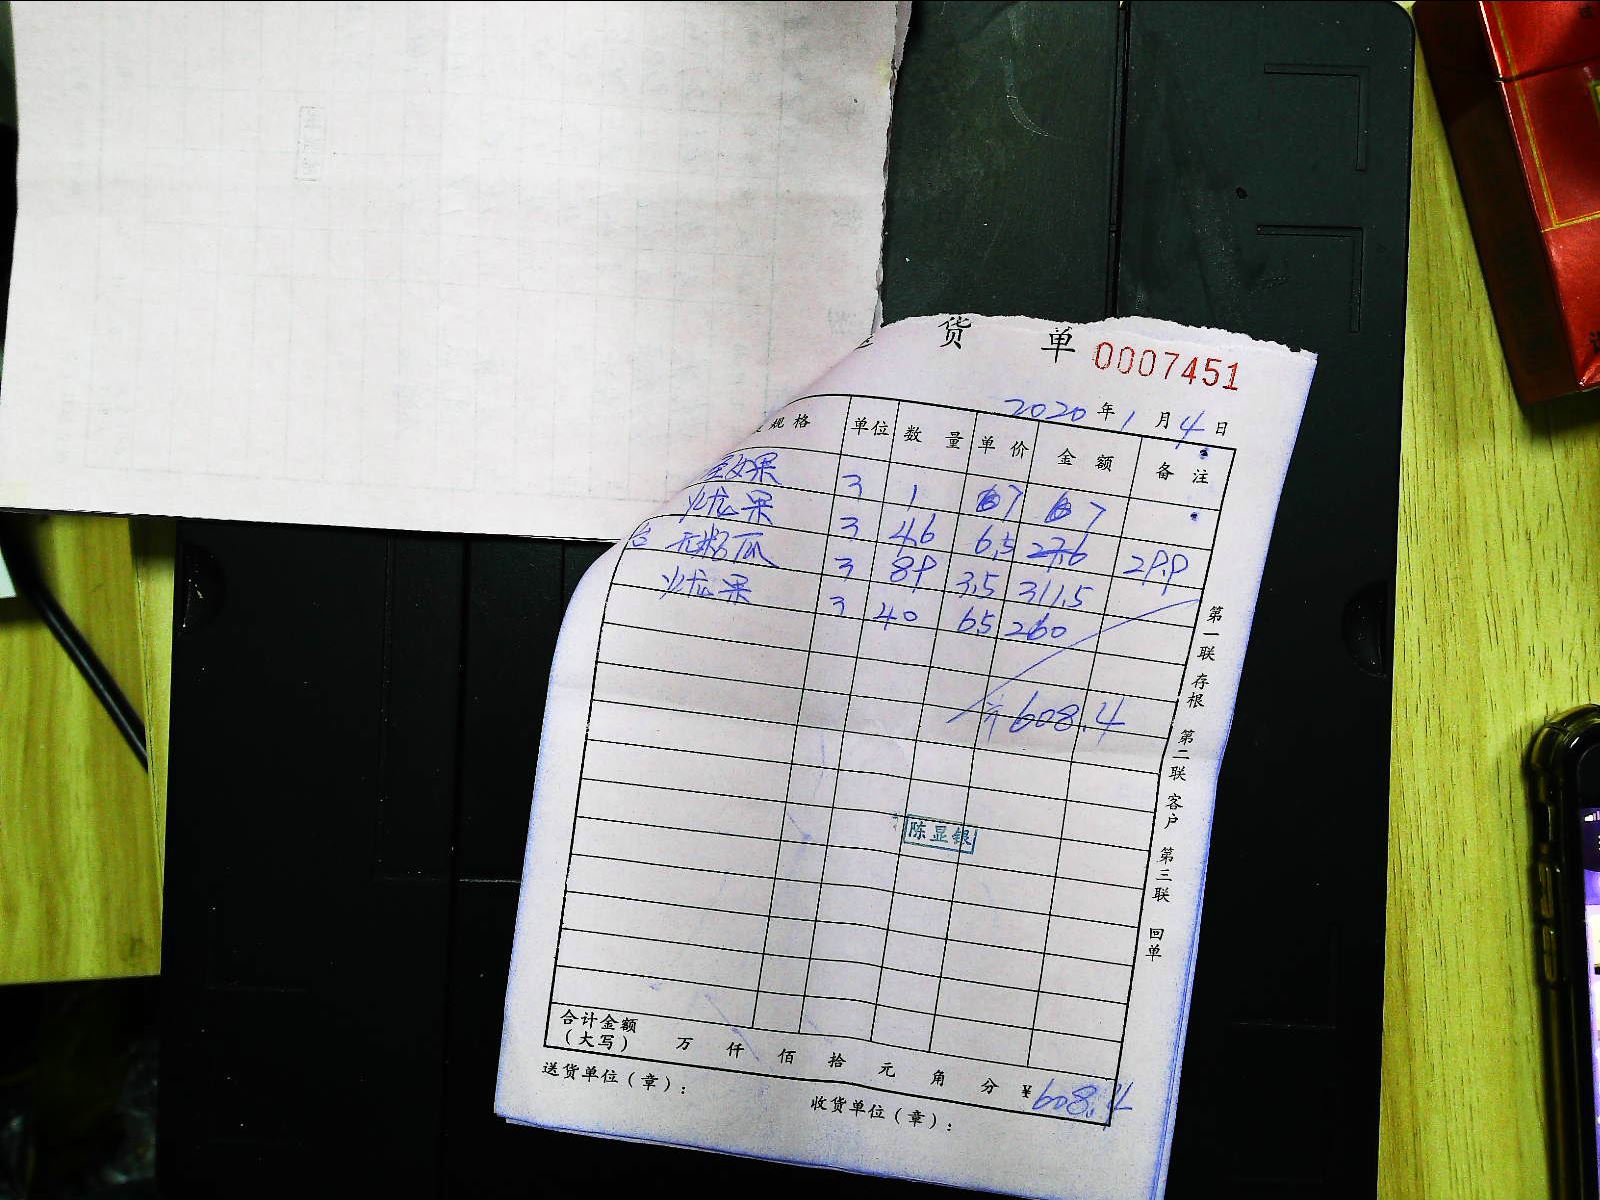 货 单 0007451
2020年1月4日
规格 单位 数量 单价 金额 备注
果 3 1 7 7
火龙果 3 4.6 6.5 27.6 29.9
无籽瓜 3 89 3.5 311.5
火龙果 3 40 6.5 260
608.4
陈显银
合计金额
(大写) 万 仟 佰 拾 元 角 分 ¥608.4
送货单位(章):
收货单位(章):
第一联 存根 第二联 客户 第三联 回单